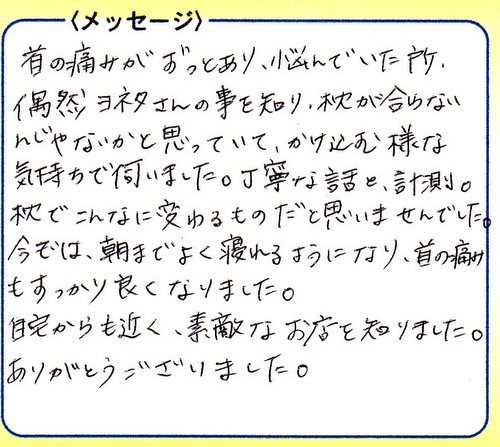 〈メッセージ〉
首の痛みがずっとあり、悩んでいた所、
偶然ヨネタさんの事を知り、枕が合らない
んじゃないかと思っていて、かけ込む様な
気持ちで伺いました。丁寧な話と、計測。
枕でこんなに変わるものだと思いませんでした。
今では、朝までよく寝れるようになり、首の痛み
もすっかり良くなりました。
自宅からも近く、素敵なお店を知りました。
ありがとうございました。